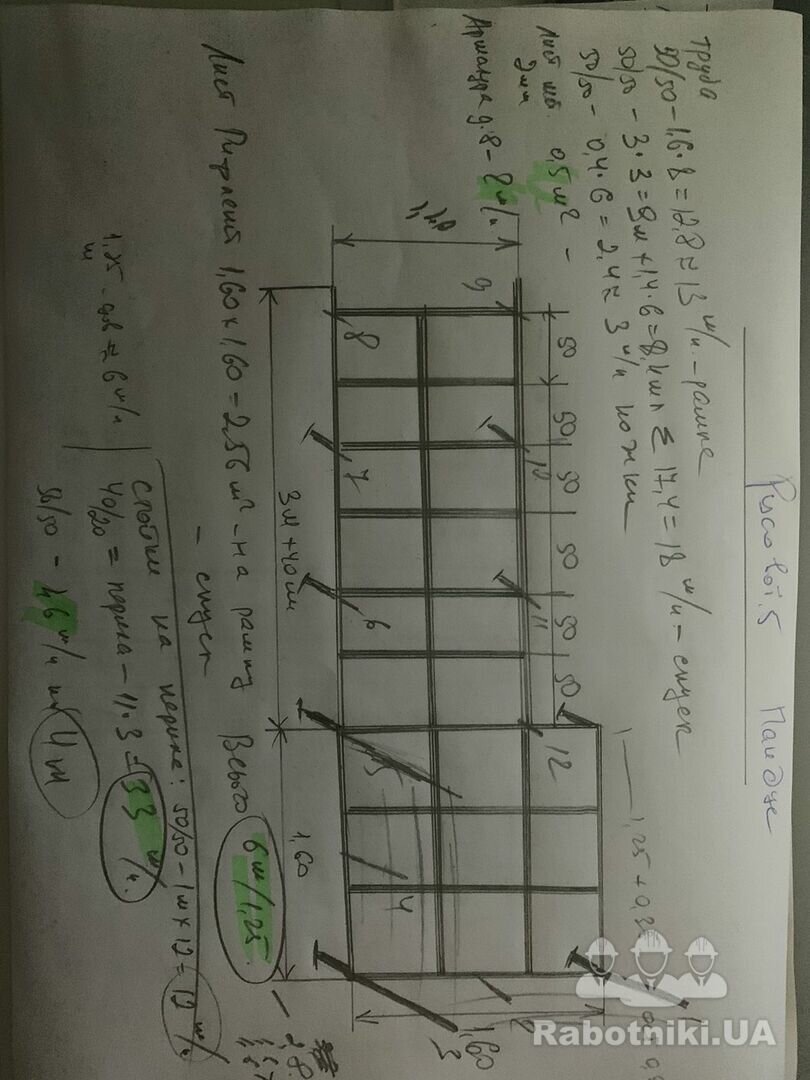 Пандус
труба
50/50 - 1,6·8 = 12,8 ≈ 13 м/п. - рампе
50/50 - 3·3 = 9м + 1,4·6 = 8,4 мп Σ 17,4 = 18 м/п - спуск
50/50 - 0,4·6 = 2,4 ≈ 3 м/п ножки
Лист шт. 0,5 м² -
2мм
Арматура д.8 - 8 м/п
50 50 50 50 50 50
9 10 11 12
8 7 6 5 4
3
3м + 40см
1,60
1,60
1,25 + 0,3
Лист Рифлений 1,60 x 1,60 = 2,56 м² - на рампу Всього 6м/1,25.
- спуск
стойки на перила: 50/50 - 1м x 12 = 12 м/п
40/20 = перила - 11·3 = 33 м/п.
50/50 - 46 м/п
4м
Rabotniki.UA